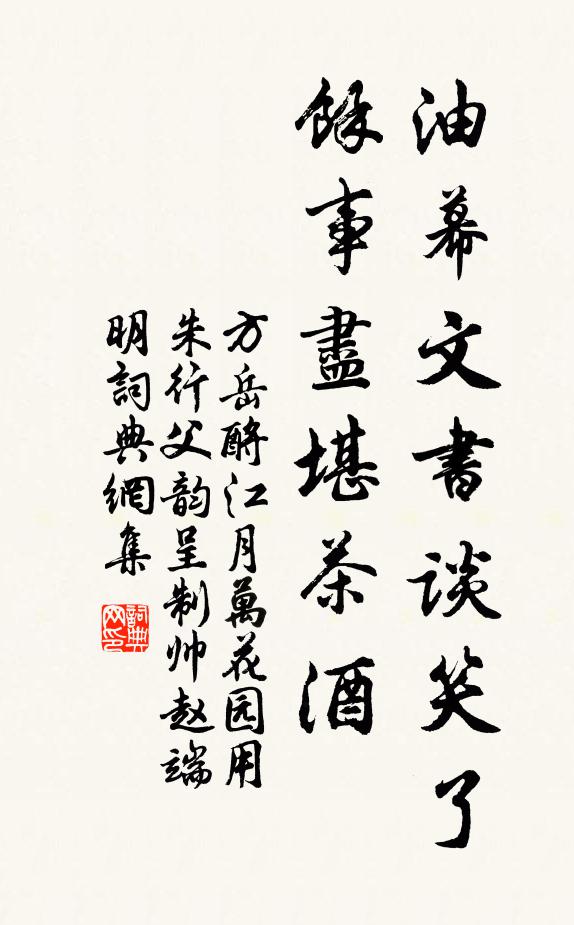 油幕文書谈笑了
餘事盡堪茶酒
方岳酹江月萬花园用
朱行父韵呈制帅赵端
明詞典網集
詞典
网印